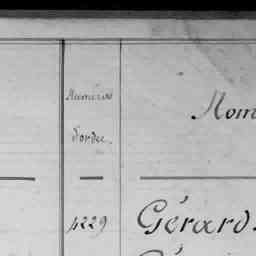 Numéros
d'ordre.
Nom
4229
Gérard.